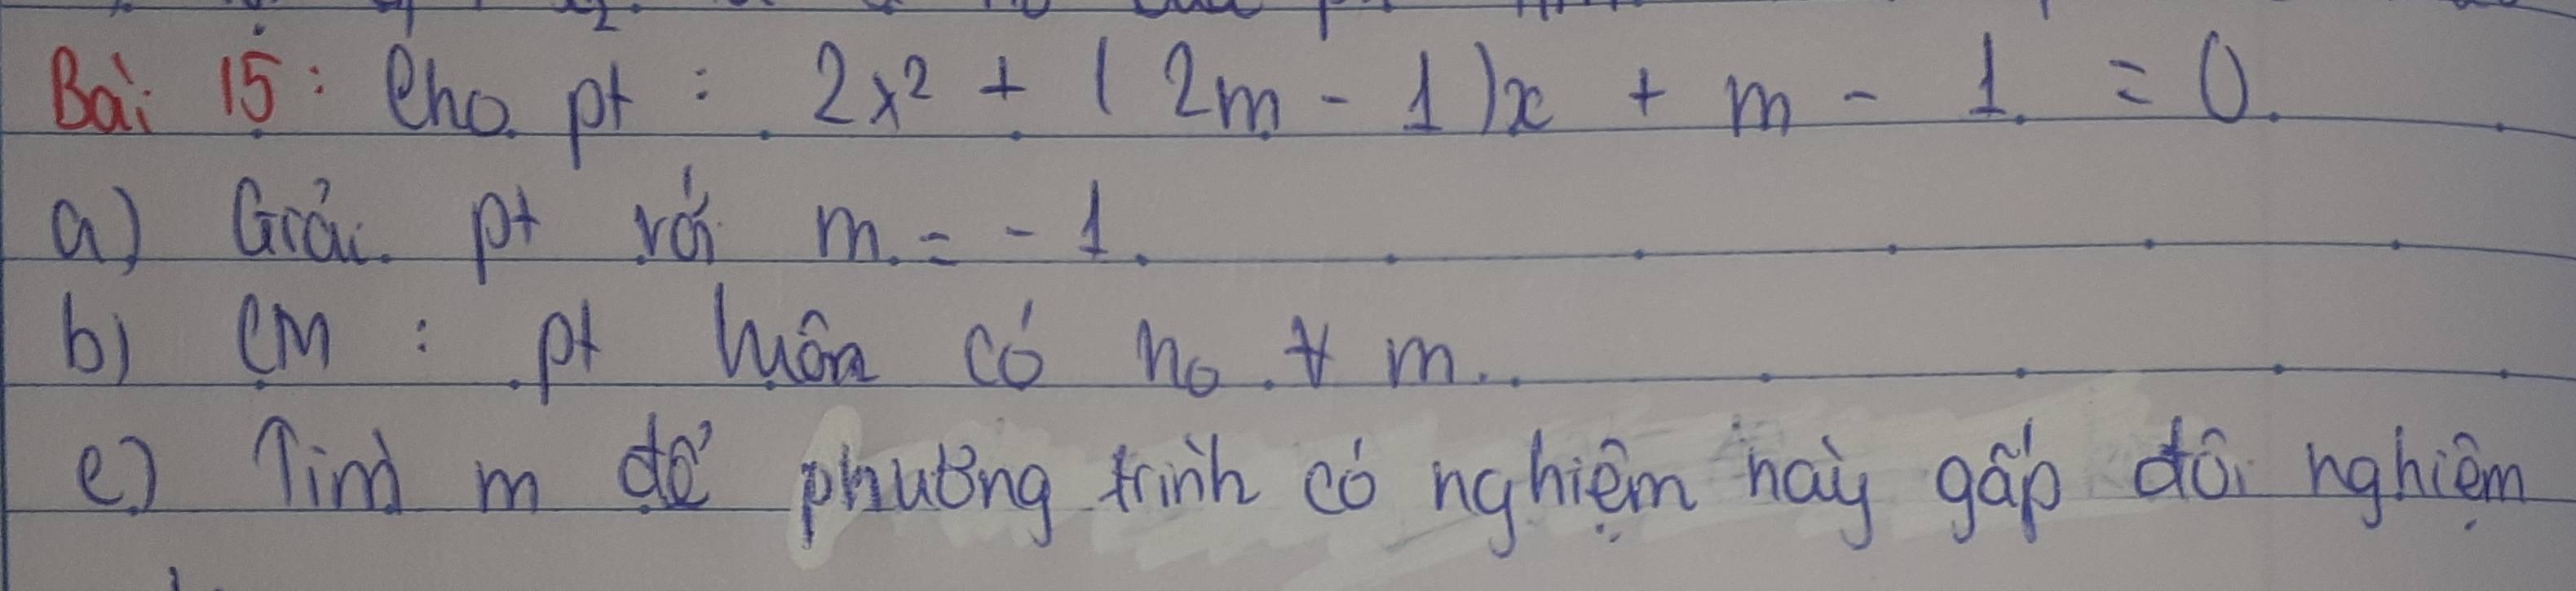 Bài 15: Cho pt : 2x² + (2m - 1)x + m - 1 = 0.
a) Giải pt với m = -1.
b) CM : pt luôn có no ∀ m.
c) Tìm m để phương trình có nghiệm này gấp đôi nghiệm